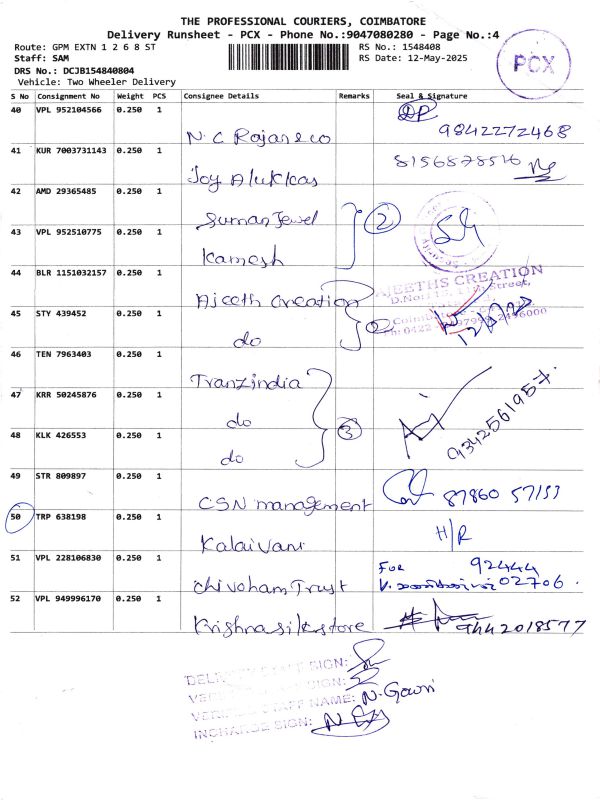 THE PROFESSIONAL COURIERS, COIMBATORE
Delivery Runsheet - PCX - Phone No.:9047080280 - Page No.:4
Route: GPM EXTN 1 2 6 8 ST
RS No.: 1548408
Staff: SAM
RS Date: 12-May-2025
DRS No.: DCJB154840804
Vehicle: Two Wheeler Delivery
PCX
S No Consignment No Weight PCS Consignee Details Remarks Seal & Signature
40 VPL 952104566 0.250 1
N.C Rajan & co
9842272468
41 KUR 7003731143 0.250 1
Joy Alukkas
42 AMD 29365485 0.250 1
Suman Jewel
2
43 VPL 952510775 0.250 1
Kamesh
44 BLR 1151032157 0.250 1
Ajeeth Creation
AJEETHS CREATION
45 STY 439452 0.250 1
do
46 TEN 7963403 0.250 1
Tranzindia
47 KRR 50245876 0.250 1
do
3
9342561957.
48 KLK 426553 0.250 1
do
49 STR 809897 0.250 1
CSN management
50 TRP 638198 0.250 1
Kalaivani
H/R
51 VPL 228106830 0.250 1
Chivoham Trust
FOR 92444
02706.
52 VPL 949996170 0.250 1
Krishna silk store
9442018577
DELIVERY STAFF SIGN:
VERIFIED STAFF NAME: N. Gowri
INCHARGE SIGN: